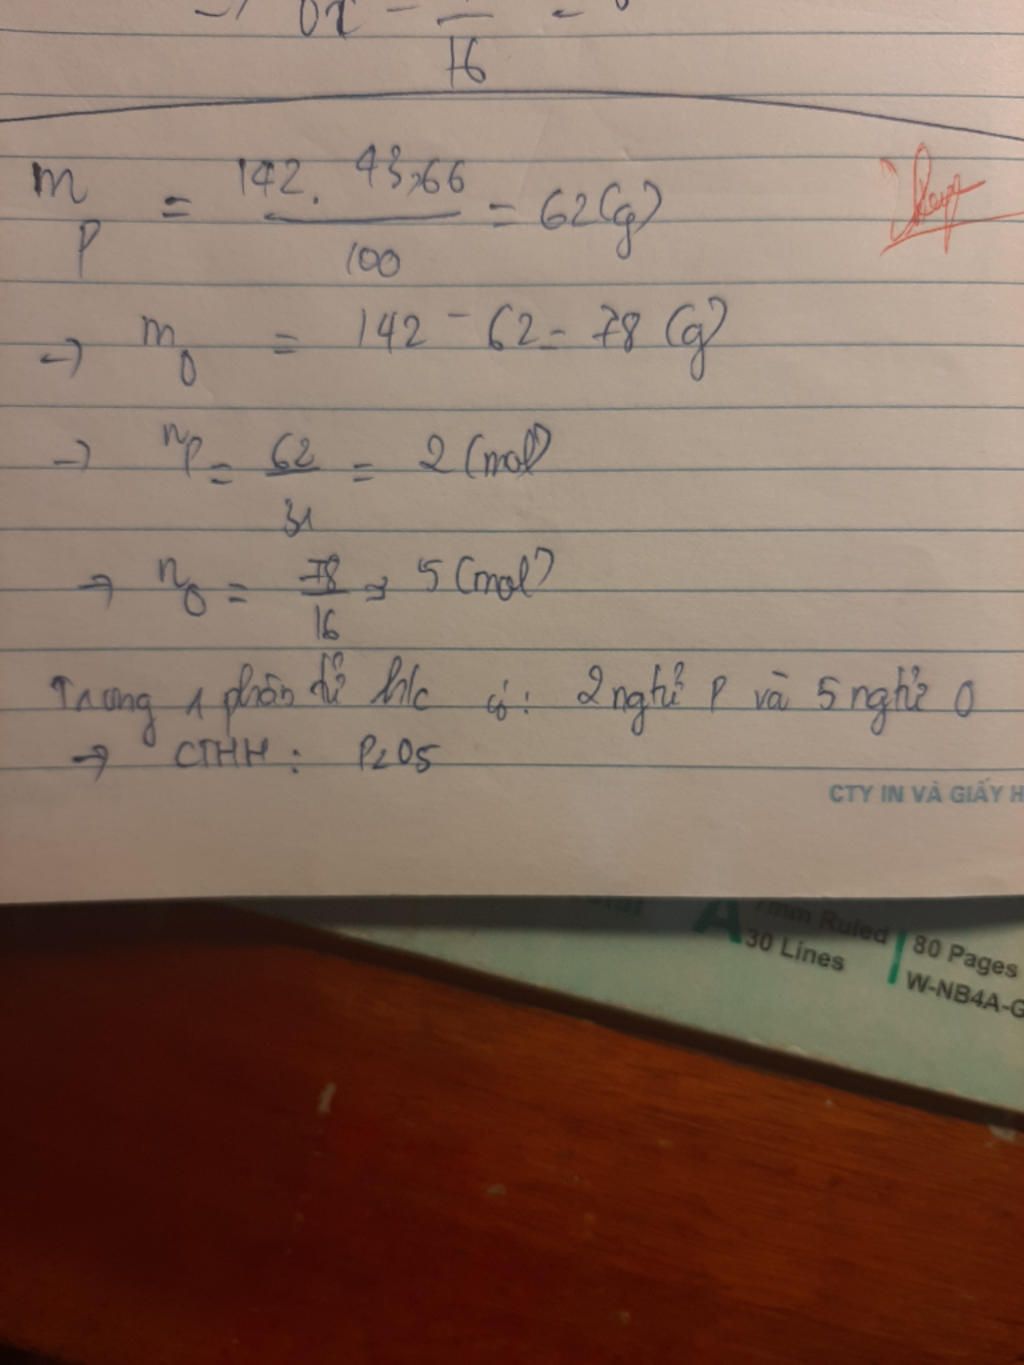 16
m P = 142. 43,66 / 100 = 62 (g)
→ m O = 142 - 62 = 78 (g)
→ nP = 62 / 31 = 2 (mol)
→ nO = 78 / 16 = 5 (mol)
Trong 1 phân tử h/c có: 2 ngtử P và 5 ngtử O
→ CTHH: P2O5
CTY IN VÀ GIẤY H
A 7mm Ruled
30 Lines
80 Pages
W-NB4A-G